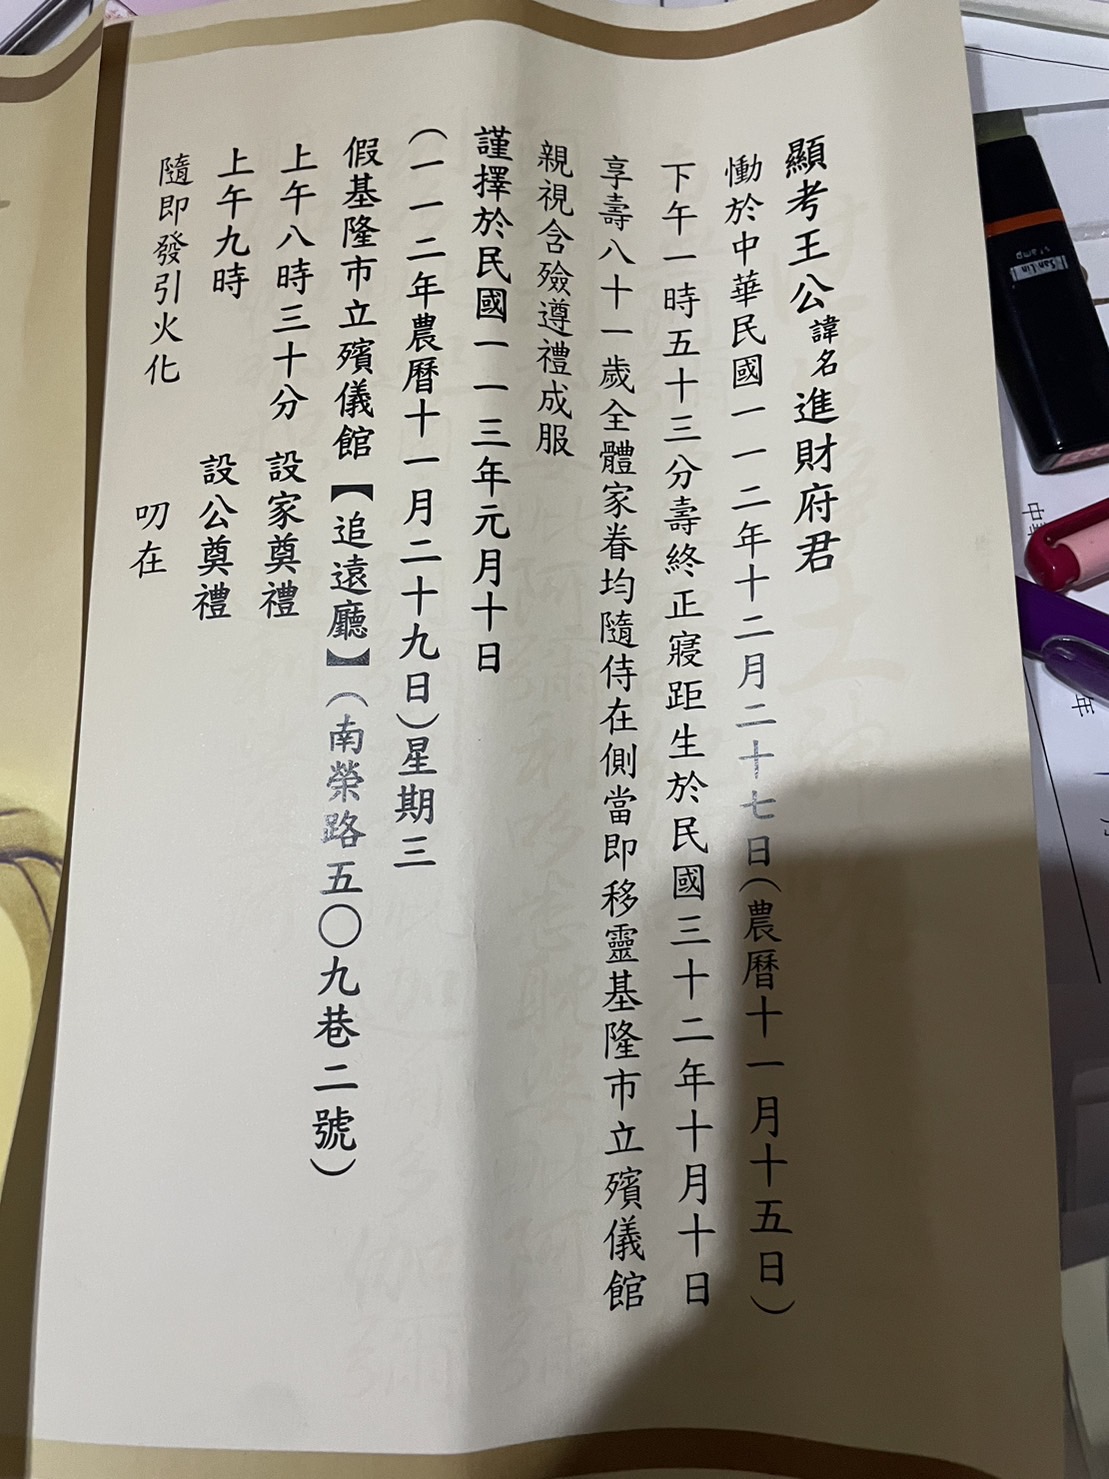 顯考王公諱名進財府君
慟於中華民國一一二年十二月二十七日(農曆十一月十五日)
下午一時五十三分壽終正寢距生於民國三十二年十月十日
享壽八十一歲全體家眷均隨侍在側當即移靈基隆市立殯儀館
親視含殮遵禮成服
謹擇於民國一一三年元月十日
(一一二年農曆十一月二十九日)星期三
假基隆市立殯儀館【追遠廳】(南榮路五〇九巷二號)
上午八時三十分 設家奠禮
上午九時 設公奠禮
隨即發引火化
叨在
San Lin
stamp
年